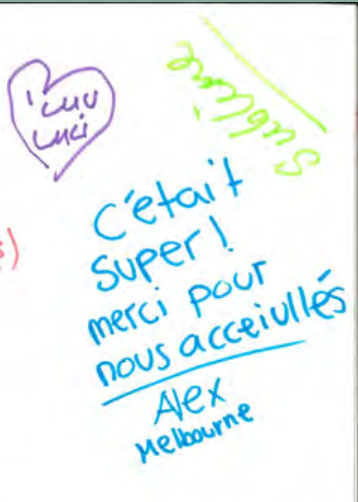 I luv
Luci
Sublime
s)
C'était
super!
merci pour
nous acceiullés
Alex
Melbourne